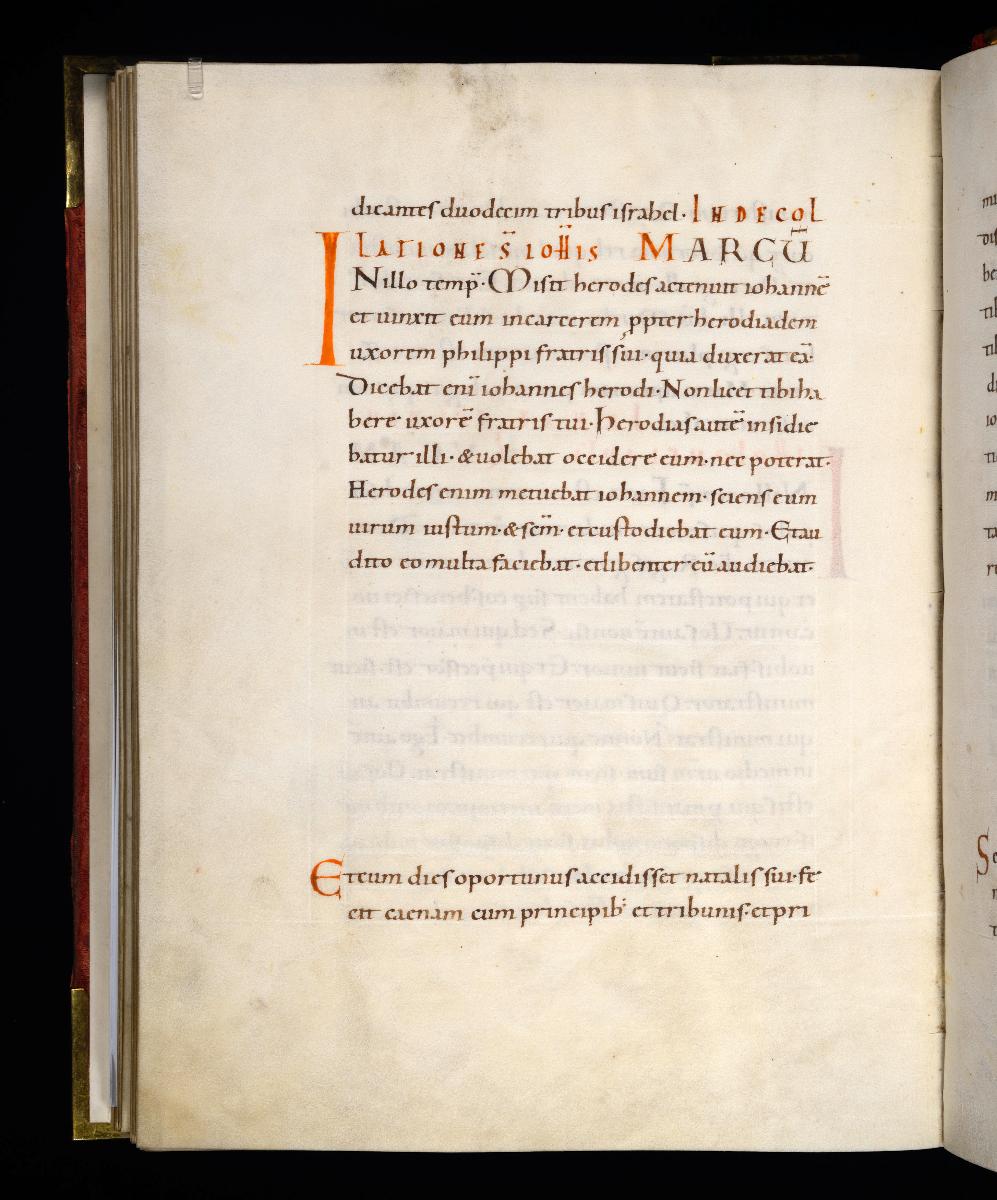 dicantes duodecim tribus israhel. IN DECOL
LATIONE S̄ IOH̄IS MARCŪ
INillo temp̄. Misit herodes ac tenuit iohannē
et uinxit eum in carcerem ꝓpter herodiadem
uxorem philippi fratris sui. quia duxerat eā.
Dicebat enī iohannes herodi. Non licet tibi ha
bere uxorē fratris tui. Herodias autē insidie
batur illi. & uolebat occidere eum. nec poterat.
Herodes enim metuebat iohannem. sciens eum
uirum iustum. & sc̄m. et custodiebat eum. Et au
dito eo multa faciebat. et libenter eū audiebat.
Et cum dies oportunus accidisset natalis sui. fe
cit caenam cum principib: et tribunis. et pri